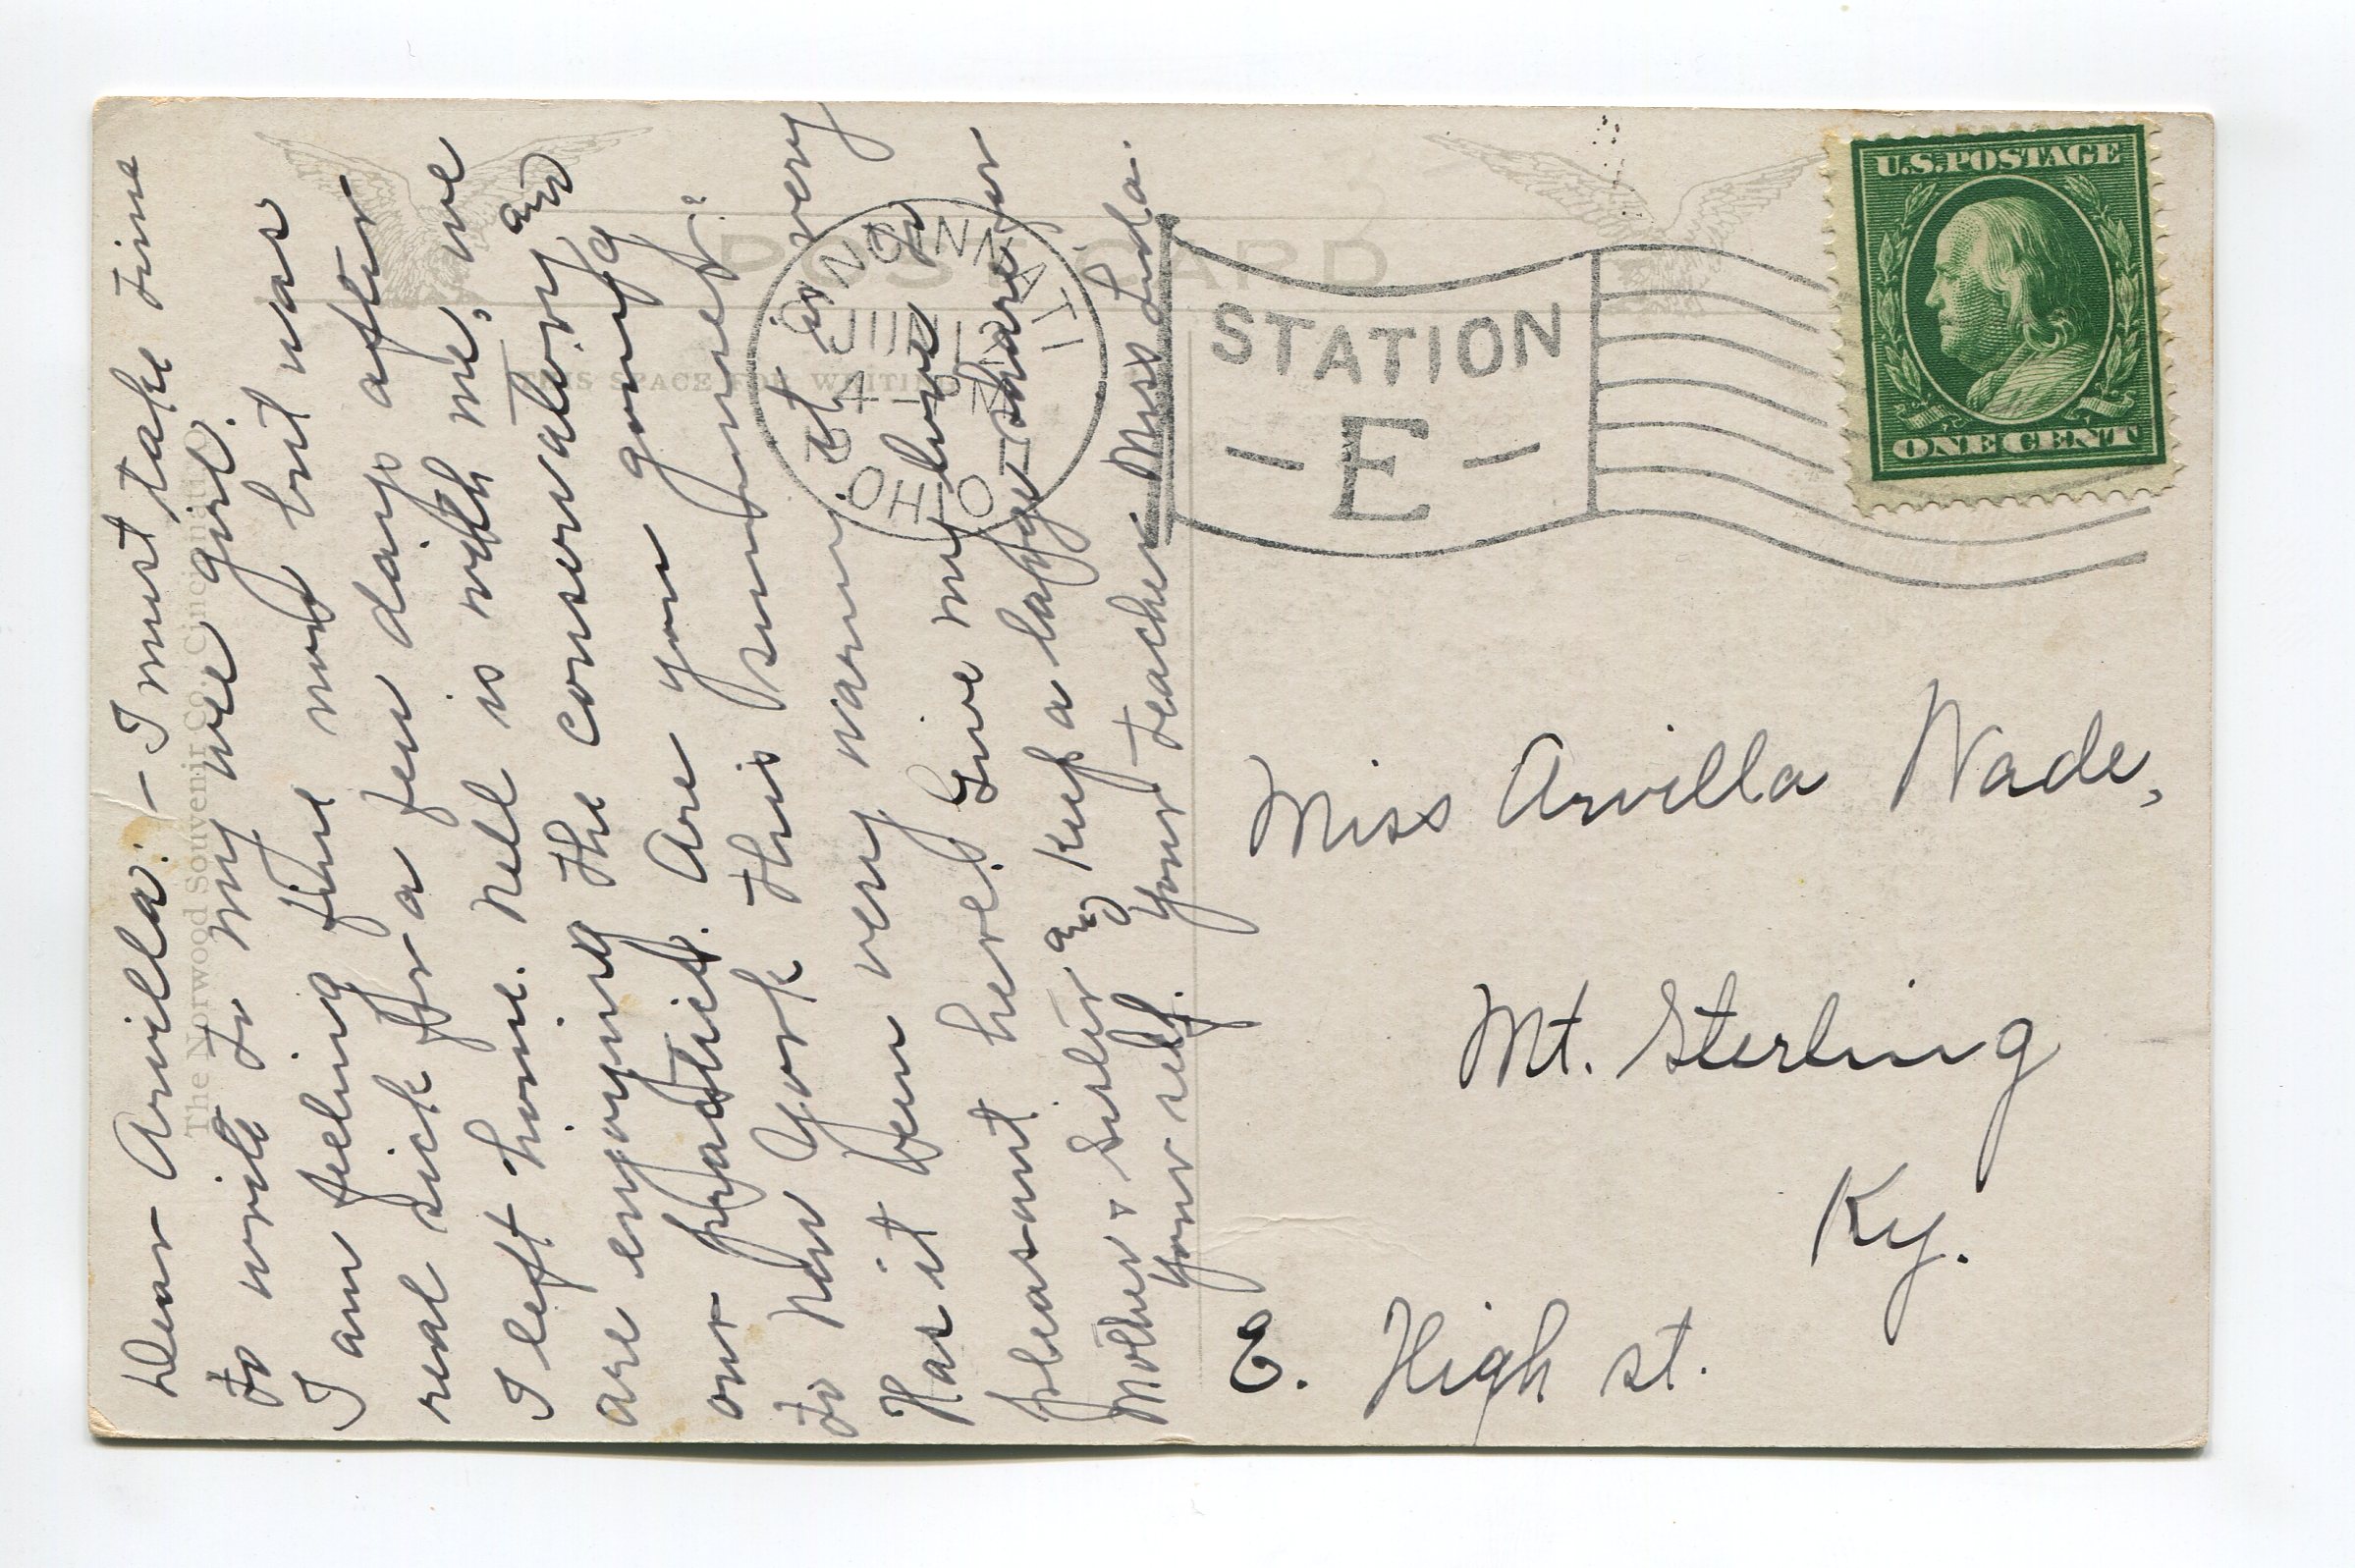 Dear Arvilla:- I must take time
to write to my wee girl.
I am feeling fine now but was
real sick for a few days after
I left home. Nell is with me, we
are enjoying the conservatory and
our practice. Are you going
to New York this summer?
Has it been very warm, it is very
pleasant here. Give my love to
Mother & Sister and keep a large share for
your self. Your teacher Miss Lida.
The Norwood Souvenir Co. Cincinnati, O.
POST CARD
THIS SPACE FOR WRITING
CINCINNATI
OHIO
STATION
- E -
U.S. POSTAGE
ONE CENT
Miss Arvilla Wade,
Mt. Sterling
Ky.
E. High st.